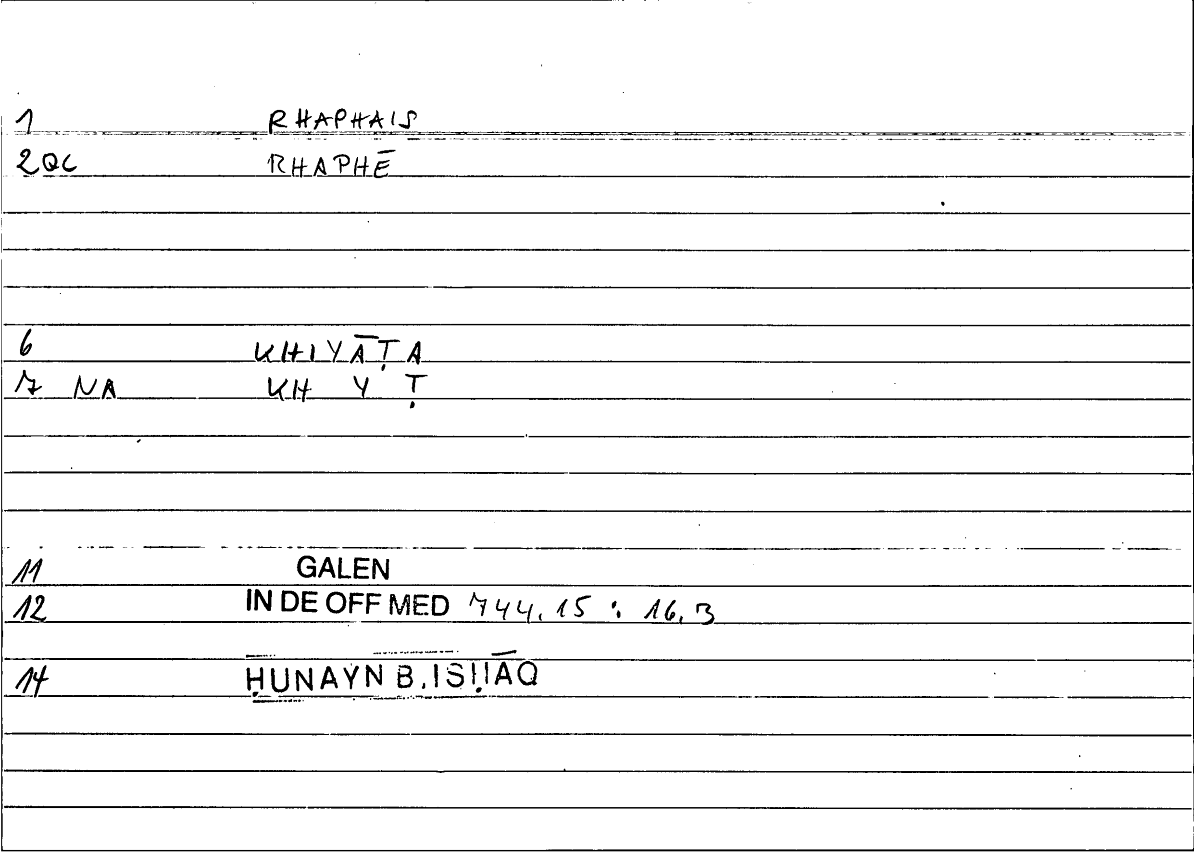 1 RHAPHAIS
2QC RHAPHĒ
6 KHIYĀṬA
7 NA KH Y Ṭ
11 GALEN
12 IN DE OFF MED 744.15 : 16.3
14 ḤUNAYN B. ISḤĀQ